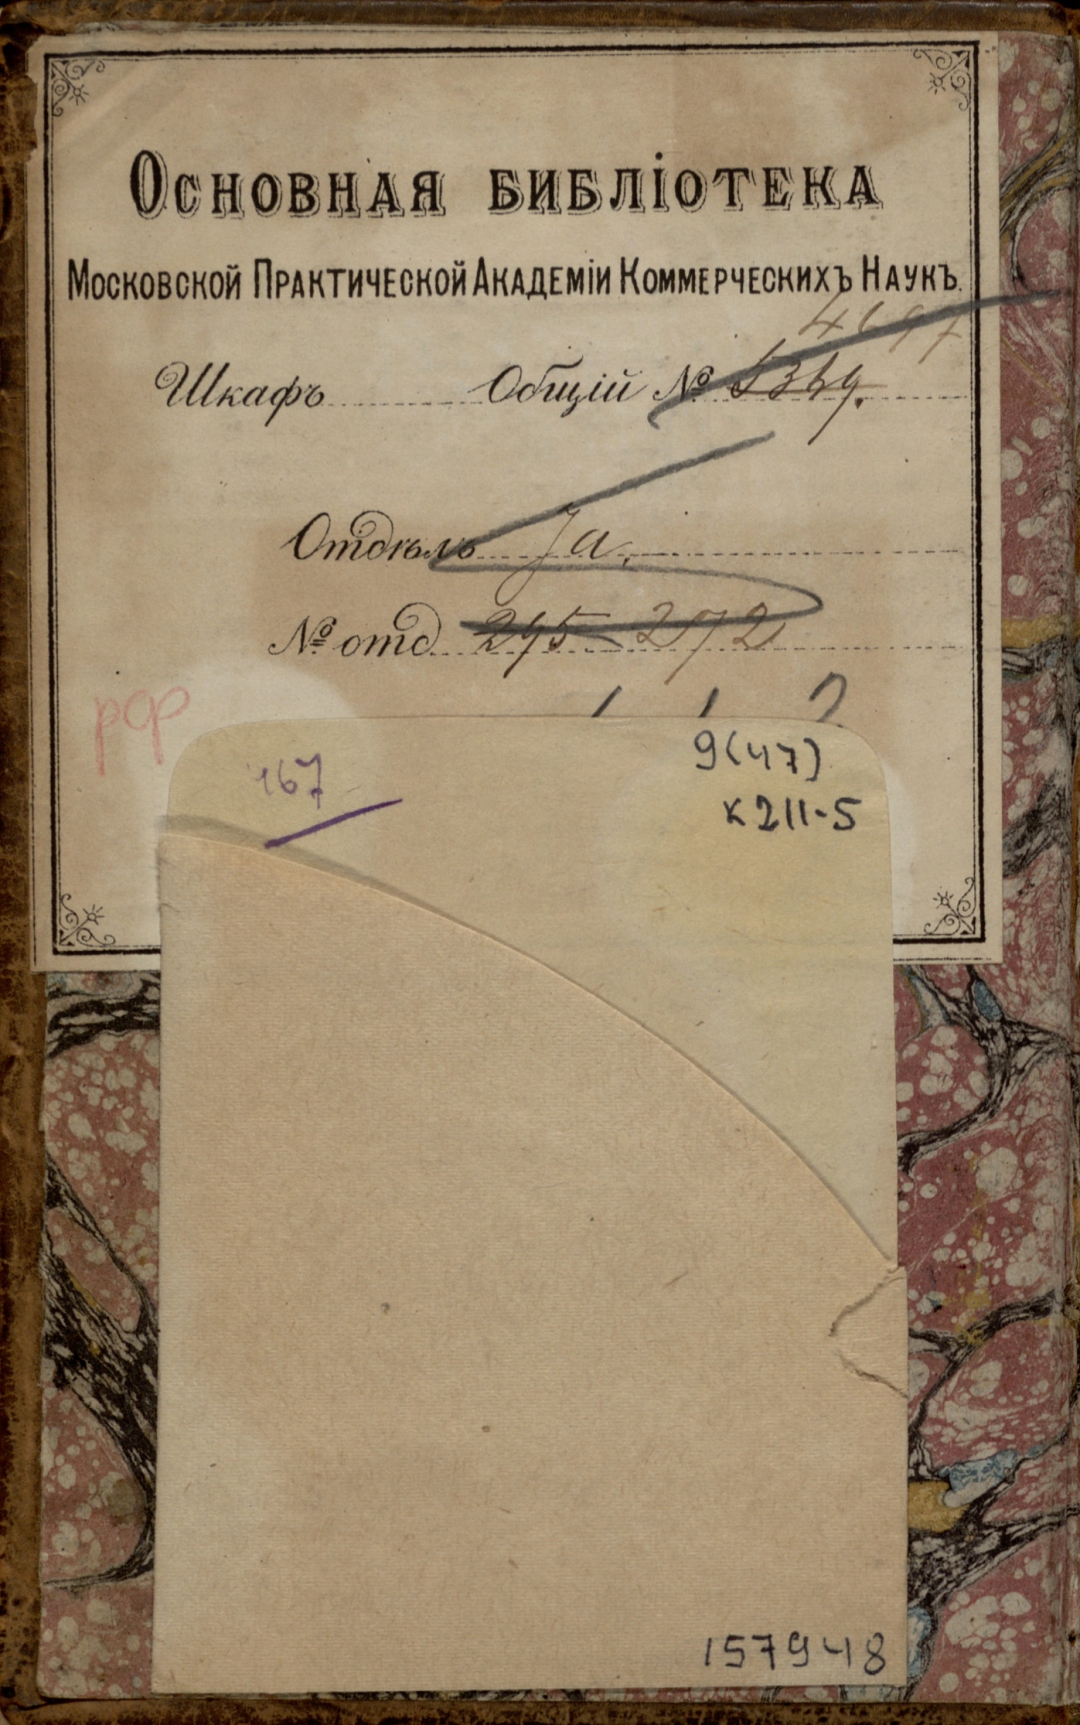 Основная библіотека
Московской Практической Академіи Коммерческихъ Наукъ.
Шкафъ Общій №
Отдѣлъ Ia.
№ отд. 295 272
рф
167
9(47)
К211-5
157948